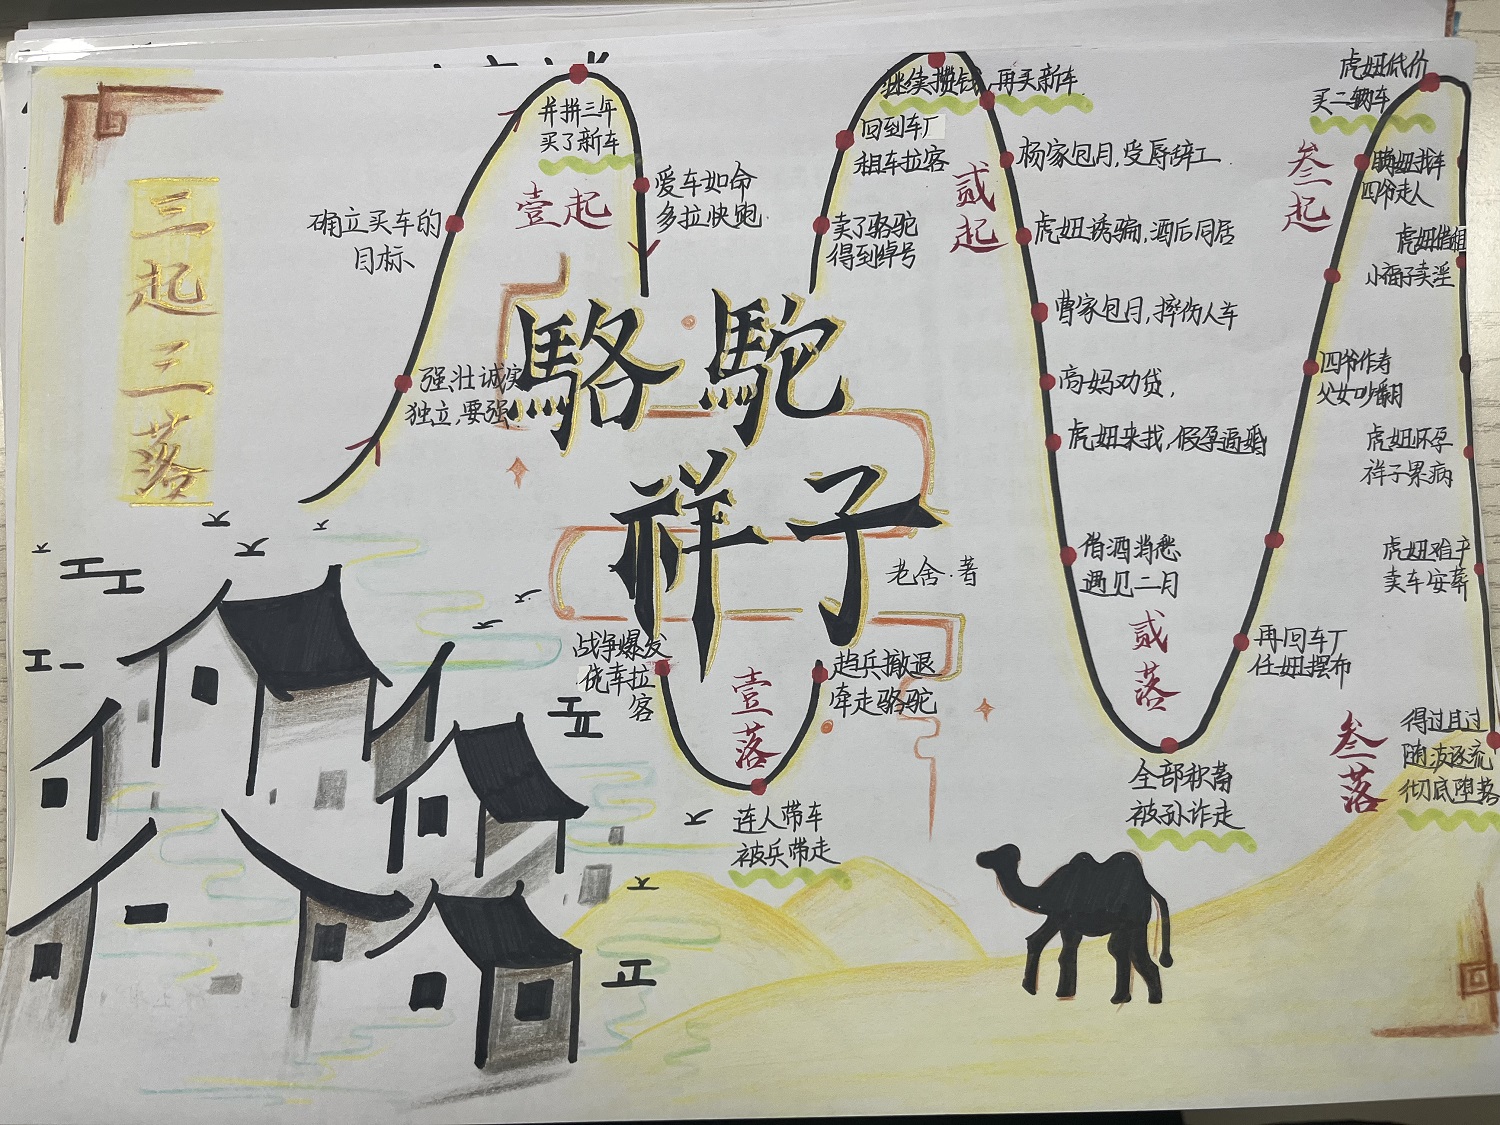 三起三落
駱駝
祥子
老舍·著
强壮诚实
独立,要强
确立买车的
目标
并拼三年
买了新车
壹起
爱车如命
多拉快跑
战争爆发
侥幸拉
客
壹落
连人带车
被兵带走
趁兵撤退
牵走骆驼
卖了骆驼
得到绰号
回到车厂
租车拉客
继续攒钱,再买新车
贰起
杨家包月,受辱辞工
虎妞诱骗,酒后同居
曹家包月,摔伤人车
高妈劝贷,
虎妞来找,假孕逼婚
借酒消愁
遇见二月
贰落
全部积蓄
被孙诈走
再回车厂
任妞摆布
四爷作寿
父女吵翻
叁起
虎妞低价
买二辆车
四爷走人
小福子卖淫
虎妞怀孕
祥子累病
虎妞难产
卖车安葬
叁落
得过且过
随波逐流
彻底堕落